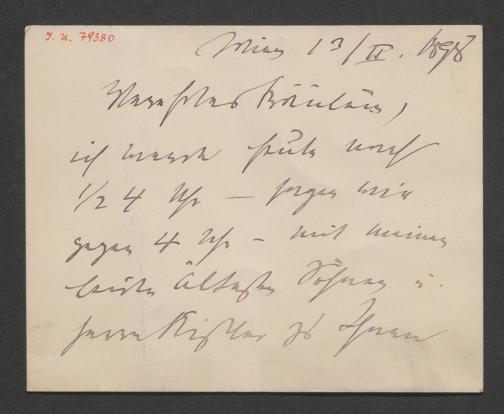 I. N. 79380
Wien 13/II. 1898
Verehrtes Fräulein,
ich werde heute nach
1/2 4 Uhr – sagen wir
gegen 4 Uhr – mit meinen
beiden ältesten Söhnen u.
Herrn Kistler zu Ihnen